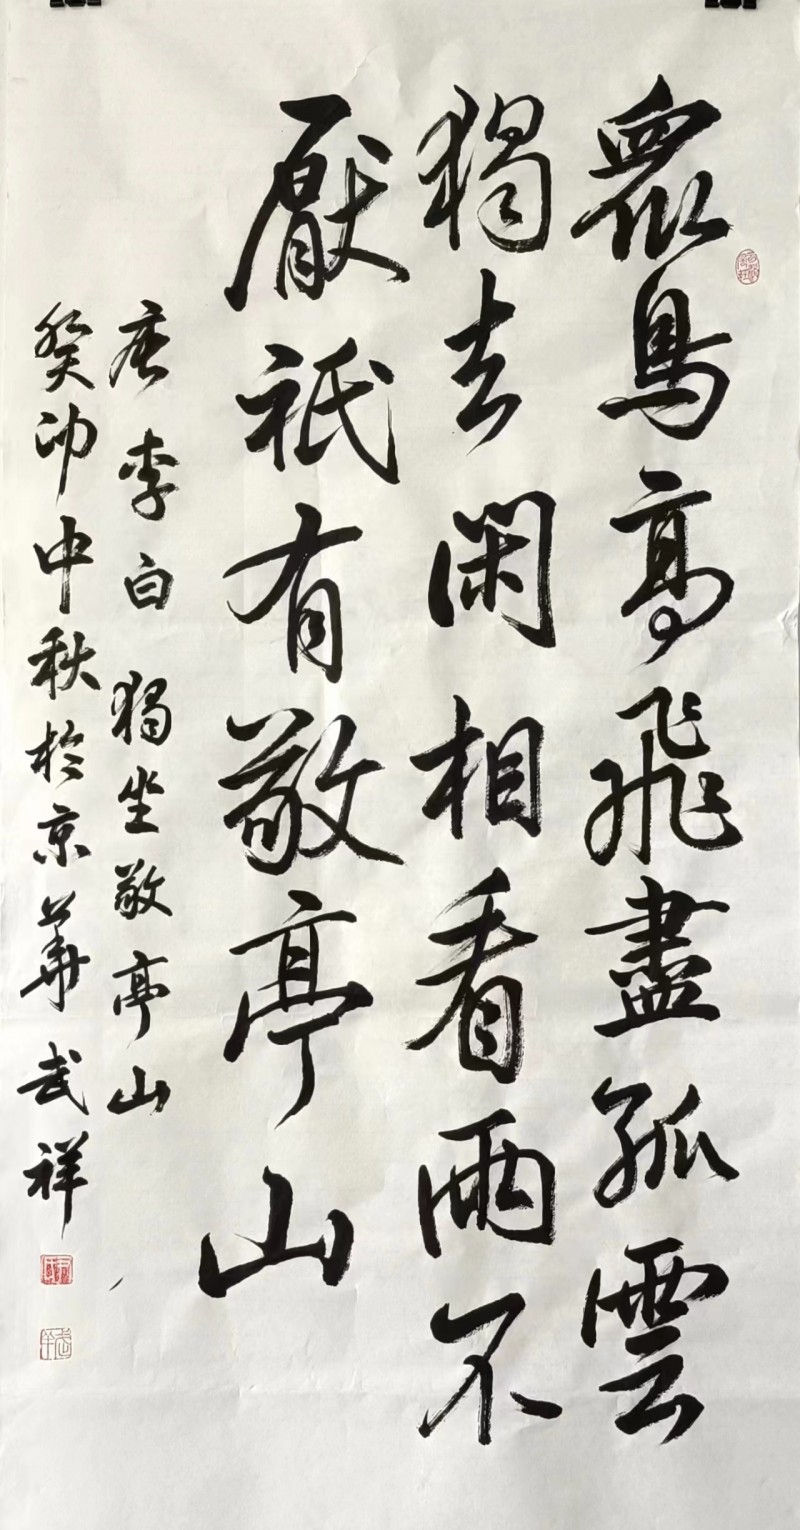 衆鳥高飛盡孤雲
獨去閑相看兩不
厭祇有敬亭山
唐李白獨坐敬亭山
癸卯中秋於京華武祥